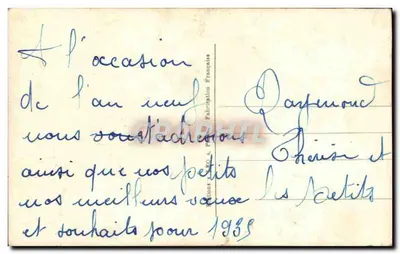 A l'occasion
de l'an neuf
nous vous t'adressons
ainsi que nos petits
nos meilleurs vœux
et souhaits pour 1935
Raymond
Thérèse et
les petits
Fabrication Française